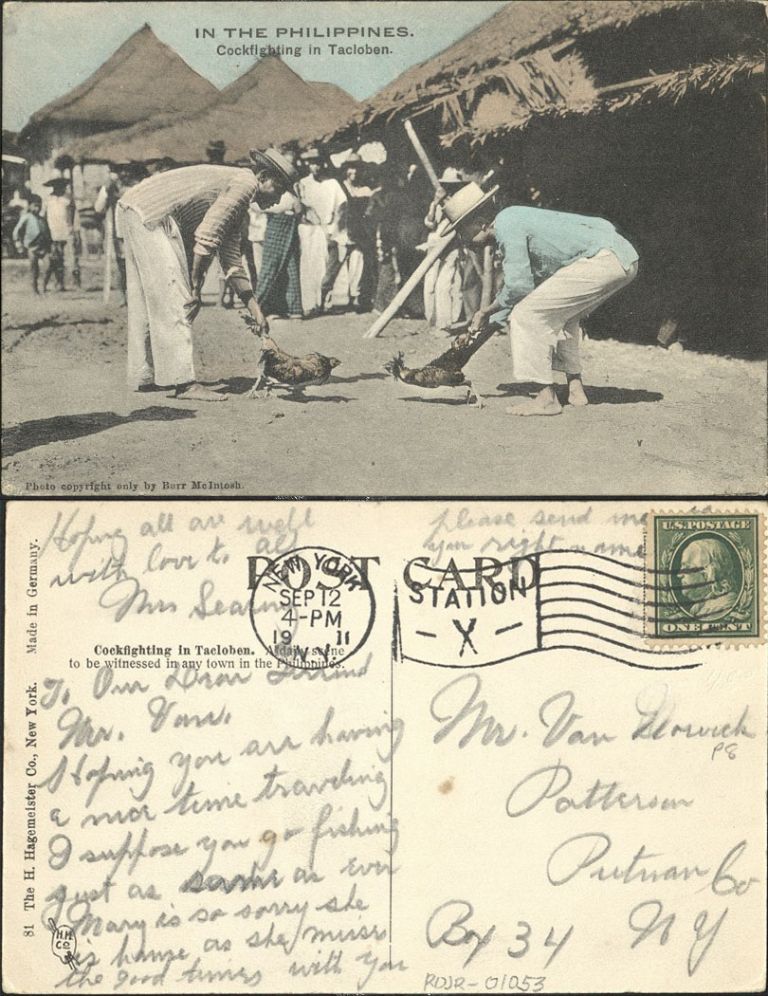 IN THE PHILIPPINES.
Cockfighting in Tacloben.
Photo copyright only by Burr McIntosh.
Hoping all are well
with love to all
Mrs
please send me
your right name
POST CARD
U.S. POSTAGE
ONE CENT
NEW YORK
SEP 12
4-PM
19 11
N.Y.
STATION
- X -
Cockfighting in Tacloben. A daily scene
to be witnessed in any town in the Philippines.
To Our Dear Friend
Mr. Van.
Hoping you are having
a nice time traveling
I suppose you go fishing
just as same as ever
Mary is so sorry she
is home as she misses
the good times with you
Mr. Van
P8
Patterson
Putnam Co
Box 34 N Y
RDJR-01053
81 The H. Hagemeister Co., New York. Made in Germany.
H.H.
CO